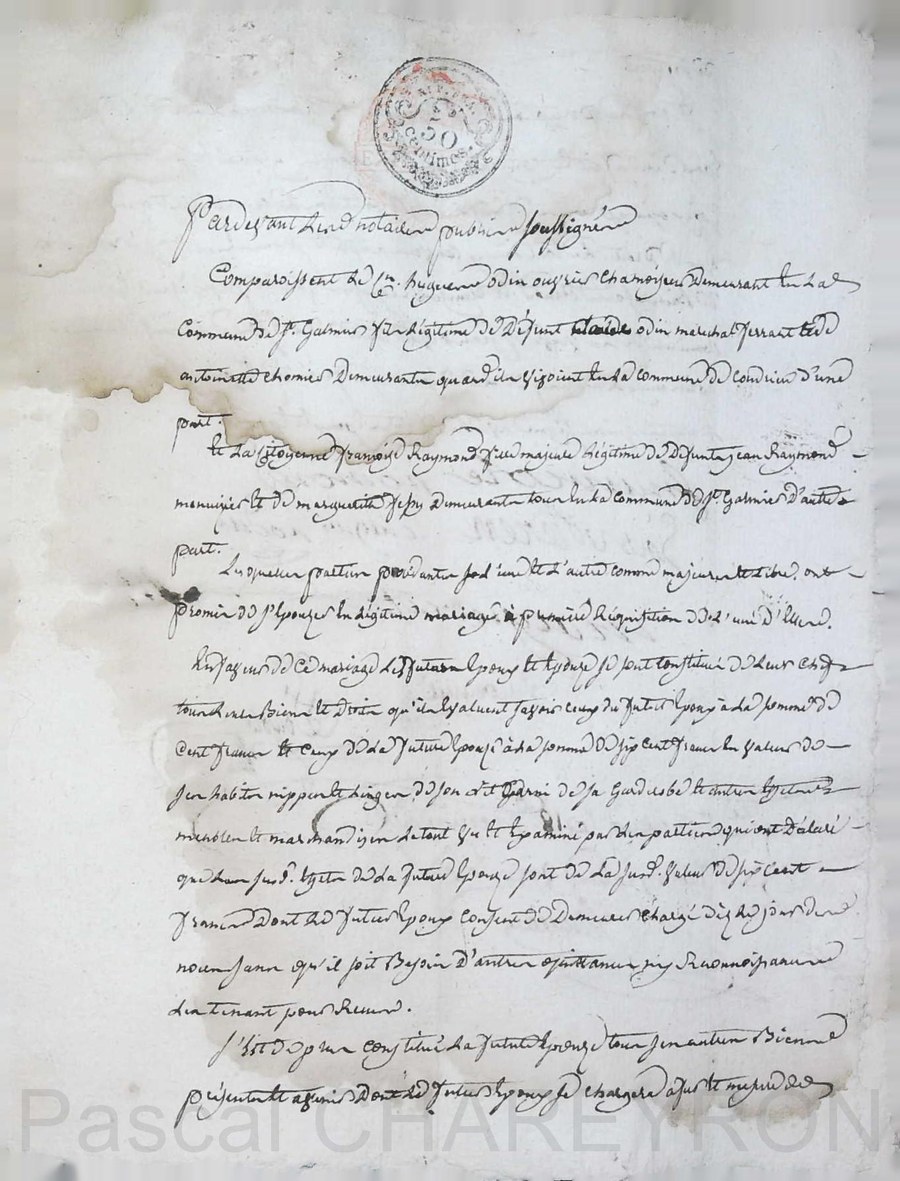 R. F.
50
centimes.
Pardevant Les notaires publics soussignés
Comparoissent Le Cen. huguenes odin ouvrier Chamoiseur Demeurant en La
Commune de St. Galmier fils Légitime de Défunt odin marechal ferrant et de
antoinette chomier Demeurants quand ils vivoient en La commune de Condrieu d'une
part.
et La Citoyenne françoise Raymond fille majeure Légitime de Défunt jean Raymond
menuisier et de marguerite Demeurants tous en La commune de St. Galmier d'autre
part.
Lesquelles parties procedantes L'une et L'autre comme majeures et Libres, ont
promis de s'Epouzer en Légitime mariage à premiere Réquisition de L'une d'Elles.
En faveur de ce mariage Les futurs Epoux et Epouze se sont Constitués de Leurs Chefs
tous Leurs Biens et Droits qu'ils Evaluent savoir ceux du futur Epoux à La somme de
Cent francs et Ceux de La future Epouze à La somme de six Cent francs En valeur de
ses habits nippes et Linges, de son Lit Garni de sa Garderobe et autres Effets
meubles et marchandises Le tout vu et Examiné par Les parties qui ont Déclaré
que Les susd. Effets de La future Epouze sont de La susd. valeur de six Cent
francs Dont Le futur Epoux Consent de Demeurer Chargé dès Le jour des
noces sans qu'il soit Besoin d'autres quittances ny Reconnoissances
Les tenant pour Reçues.
S'est de plus Constitué La future Epouze tous ses autres Biens
présents et avenir Dont Le futur Epoux se Chargera à fur et mesure de
Pascal CHAREYRON